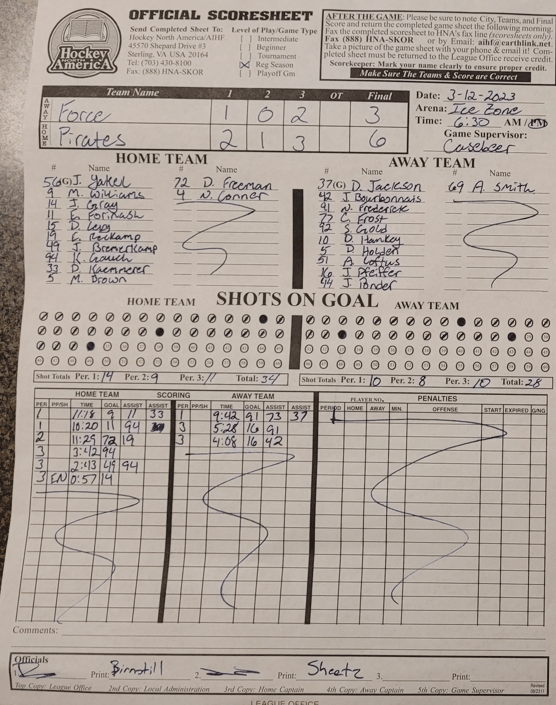 Hockey North America
OFFICIAL SCORESHEET
Send Completed Sheet To:
Hockey North America/AIHF
45570 Shepard Drive #3
Sterling, VA USA 20164
Tel: (703) 430-8100
Fax: (888) HNA-SKOR
Level of Play/Game Type
[ ] Intermediate
[ ] Beginner
[ ] Tournament
[X] Reg Season
[ ] Playoff Gm
AFTER THE GAME: Please be sure to note City, Teams, and Final
Score and return the completed game sheet the following morning.
Fax the completed scoresheet to HNA's fax line (scoresheets only);
Fax (888) HNA-SKOR or by Email: aihf@earthlink.net.
Take a picture of the game sheet with your phone & email it! Com-
pleted sheet must be returned to the League Office receive credit.
Scorekeeper: Mark your name clearly to ensure proper credit.
Make Sure The Teams & Score are Correct
Team Name 1 2 3 OT Final
AWAY Force 1 0 2 3
HOME Pirates 2 1 3 6
Date: 3-12-2023
Arena: Ice Zone
Time: 6:30 AM/PM
Game Supervisor:
HOME TEAM
# Name # Name
56(G) J. Yakel 72 D. Freeman
9 M. Williams 4 N. Conner
14 J. Gray
11 E. Forinash
15 D. Levy
19 E. Rockamp
49 J. Bremerkamp
94 K. Gauch
33 D. Kaemmerer
5 M. Brown
AWAY TEAM
# Name # Name
37(G) D. Jackson 69 A. Smith
42 J Bourbonnais
91 N. Frederick
77 C. Frost
92 S. Gold
10 D. Hankey
5 D. Holden
51 A. Loftus
16 J. Pfeiffer
44 J. Ponder
HOME TEAM SHOTS ON GOAL AWAY TEAM
Shot Totals Per. 1: 14 Per. 2: 9 Per. 3: 11 Total: 34
Shot Totals Per. 1: 10 Per. 2: 8 Per. 3: 10 Total: 28
HOME TEAM SCORING AWAY TEAM
PER PP/SH TIME GOAL ASSIST ASSIST PER PP/SH TIME GOAL ASSIST ASSIST
1 11:18 9 11 33
1 10:20 11 94
2 11:29 72 19
3 3:42 94
3 2:43 49 94
3 EN 0:57 14
9:42 91 73 37
3 5:28 16 91
3 4:08 16 42
PLAYER NO. PENALTIES
PERIOD HOME AWAY MIN. OFFENSE START EXPIRED G/NG
Comments:
Officials
1. Print: Birnstill 2. Print: Sheetz 3. Print:
Top Copy: League Office 2nd Copy: Local Administration 3rd Copy: Home Captain 4th Copy: Away Captain 5th Copy: Game Supervisor
LEAGUE OFFICE